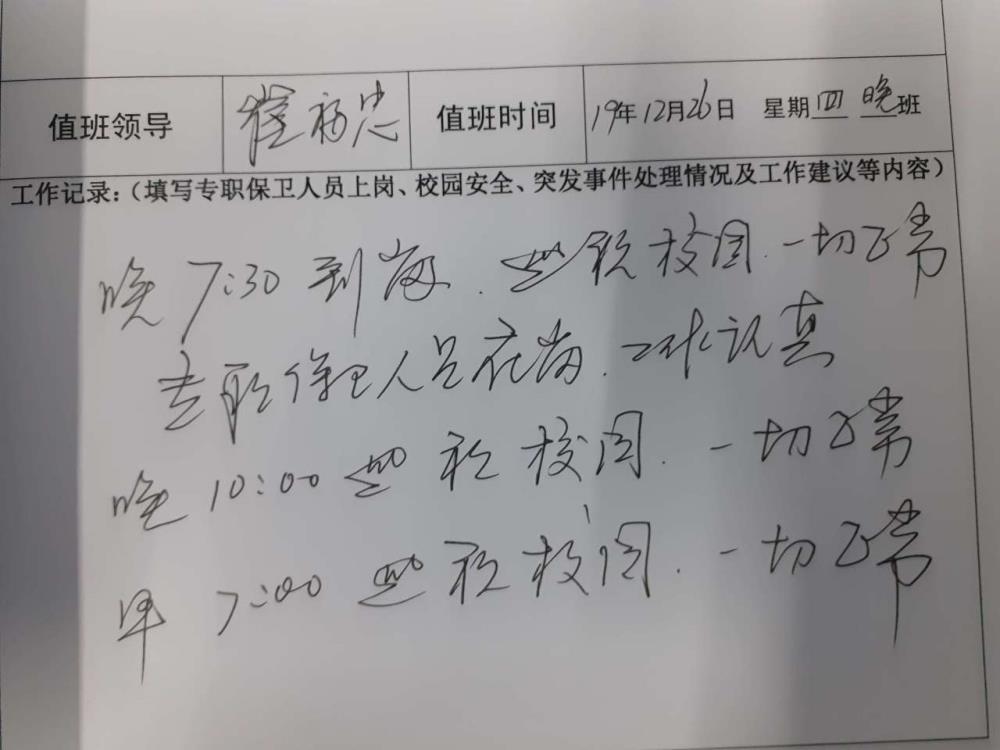 值班领导 崔福忠 值班时间 19年12月26日 星期四 晚班
工作记录:(填写专职保卫人员上岗、校园安全、突发事件处理情况及工作建议等内容)
晚7:30到岗.巡视校园.一切正常
专职保卫人员在岗.工作认真
晚10:00巡视校园.一切正常
早7:00巡视校园.一切正常